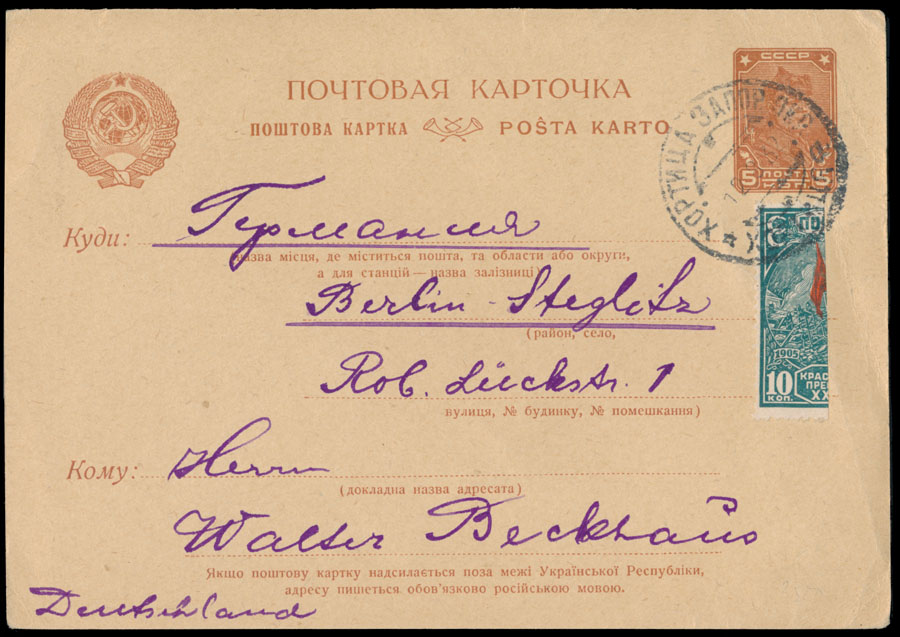 ПОЧТОВАЯ КАРТОЧКА
ПОШТОВА КАРТКА POŜTA KARTO
СССР
5 ПОЧТА 5
ХОРТИЦА ЗАПОР.
Куди: Германия
Назва місця, де міститься пошта, та области або округи,
а для станцій — назва залізниці
Berlin-Steglitz
(район, село,
Rob. Lückstr. 1
вулиця, № будинку, № помешкання)
1905
10 КОП.
КРАС
ПРЕ
XX
Кому: Herrn
(докладна назва адресата)
Walter Beckhaus
Якщо поштову картку надсилається поза межі Української Республіки,
адресу пишеться обов'язково російською мовою.
Deutschland